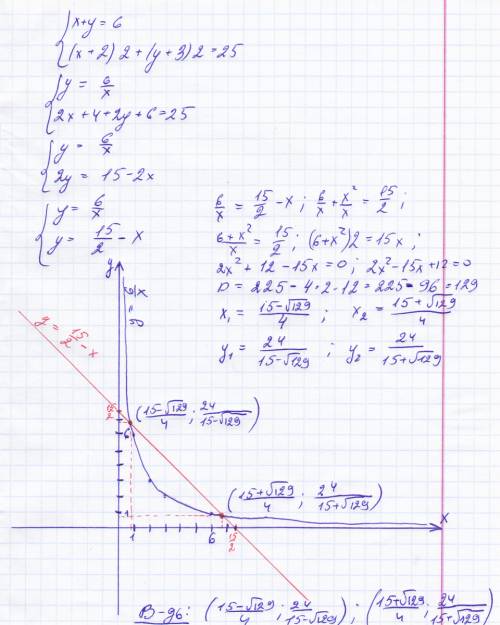 { x+y=6
{ (x+2)2+(y+3)2=25
{ y = 6/x
{ 2x+4+2y+6=25
{ y = 6/x
{ 2y = 15-2x
{ y = 6/x
{ y = 15/2 - x
6/x = 15/2 - x ; 6/x + x²/x = 15/2 ;
6+x²/x = 15/2 ; (6+x²)2 = 15x ;
2x²+12-15x=0 ; 2x²-15x+12=0
D = 225-4·2·12=225-96=129
x₁ = 15-√129/4 ; x₂ = 15+√129/4
y₁ = 24/15-√129 ; y₂ = 24/15+√129
y
y = 6/x
y = 15/2 - x
15/2
(15-√129/4 ; 24/15-√129)
6
(15+√129/4 ; 24/15+√129)
1
x
1 6 15/2
В-дь: (15-√129/4 ; 24/15-√129) ; (15+√129/4 ; 24/15+√129)